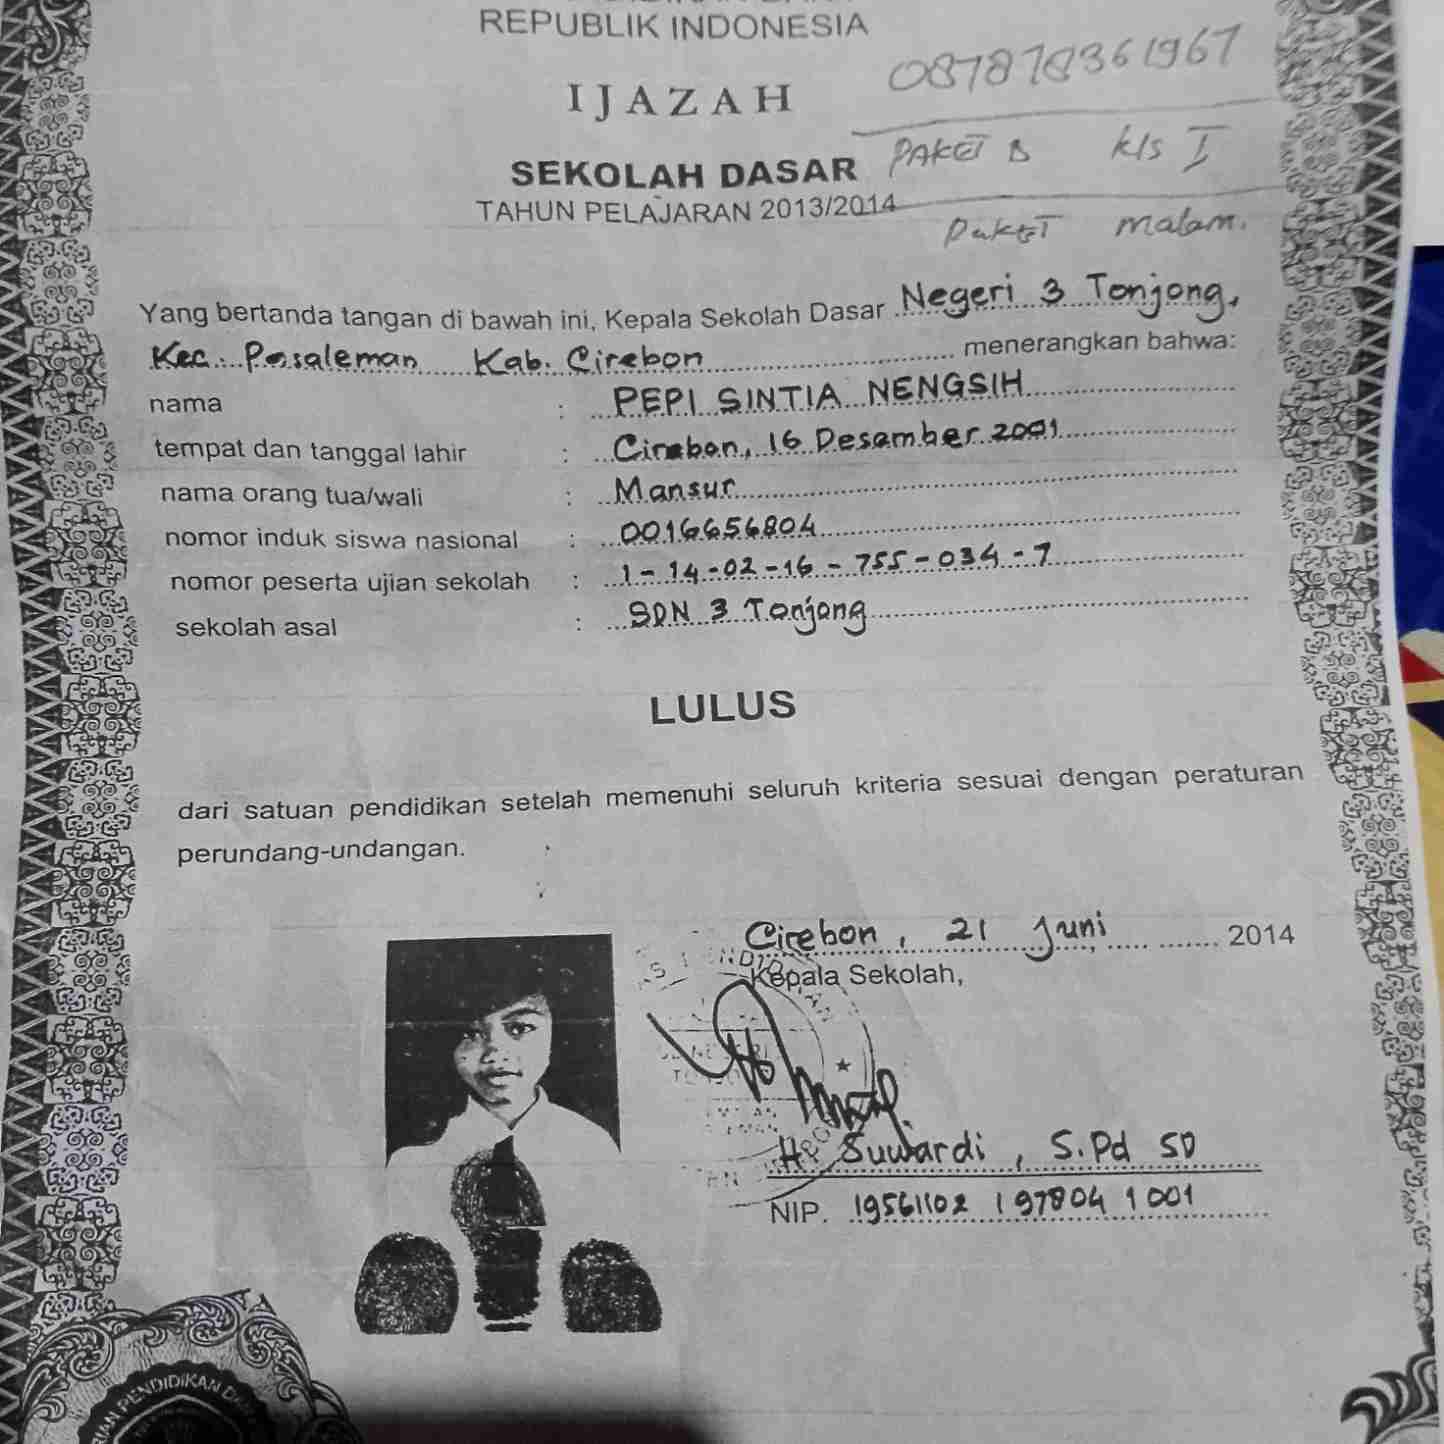 REPUBLIK INDONESIA
087878361967
IJAZAH
PAKET B kls I
SEKOLAH DASAR
TAHUN PELAJARAN 2013/2014
PaKET malam.
Yang bertanda tangan di bawah ini, Kepala Sekolah Dasar Negeri 3 Tonjong,
Kec. Pasaleman Kab. Cirebon menerangkan bahwa:
nama : PEPI SINTIA NENGSIH
tempat dan tanggal lahir : Cirebon, 16 Desember 2001
nama orang tua/wali : Mansur
nomor induk siswa nasional : 0016656804
nomor peserta ujian sekolah : 1-14-02-16-755-034-7
sekolah asal : SDN 3 Tonjong
LULUS
dari satuan pendidikan setelah memenuhi seluruh kriteria sesuai dengan peraturan
perundang-undangan.
Cirebon, 21 Juni 2014
Kepala Sekolah,
H. Suwardi, S.Pd SD
NIP. 19561102 197804 1 001
PENDIDIKAN